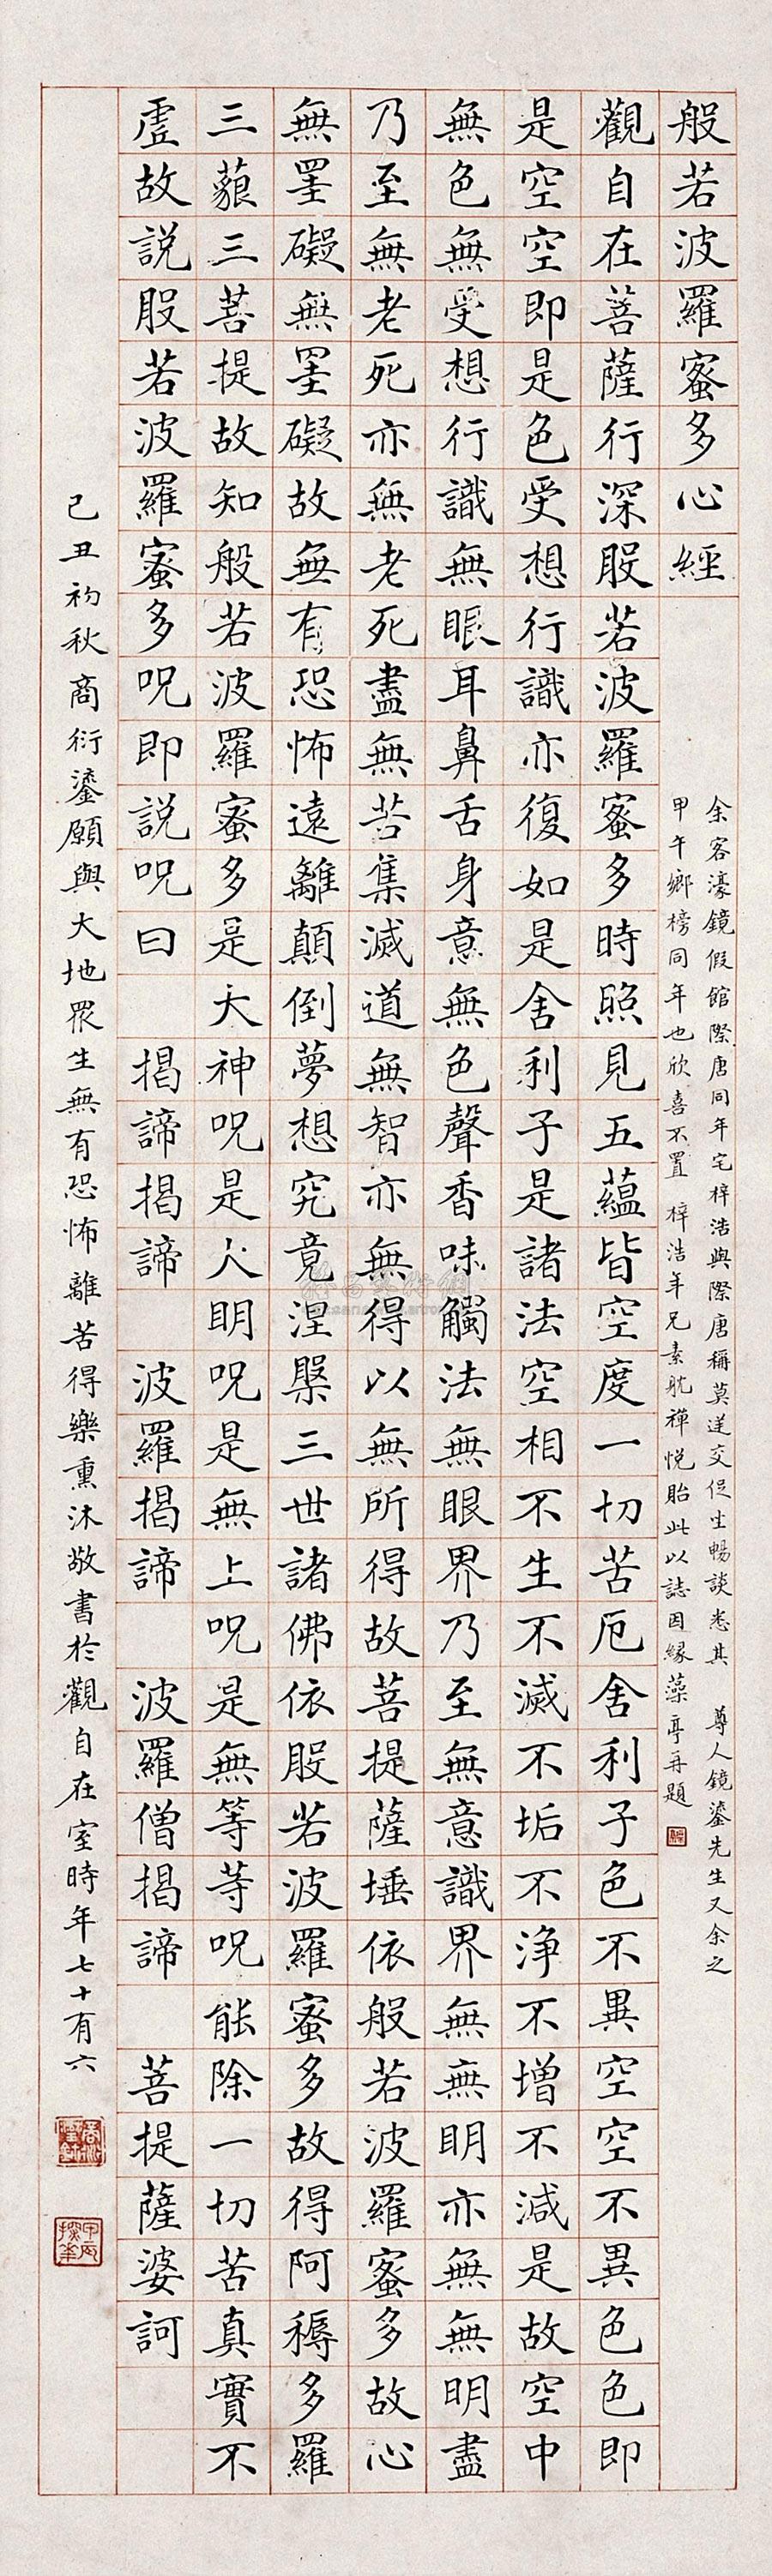 般若波羅蜜多心經
余客濠鏡假館際唐同年宅梓浩與際唐稱莫逆交促坐暢談悉其 尊人鏡鎏先生又余之
甲午鄉榜同年也欣喜不置 梓浩年兄素耽禪悅貽此以誌因緣藻亭再題
觀自在菩薩行深般若波羅蜜多時照見五蘊皆空度一切苦厄舍利子色不異空空不異色色即
是空空即是色受想行識亦復如是舍利子是諸法空相不生不滅不垢不淨不增不減是故空中
無色無受想行識無眼耳鼻舌身意無色聲香味觸法無眼界乃至無意識界無無明亦無無明盡
乃至無老死亦無老死盡無苦集滅道無智亦無得以無所得故菩提薩埵依般若波羅蜜多故心
無罣礙無罣礙故無有恐怖遠離顛倒夢想究竟涅槃三世諸佛依般若波羅蜜多故得阿耨多羅
三藐三菩提故知般若波羅蜜多是大神呪是大明呪是無上呪是無等等呪能除一切苦真實不
虛故說般若波羅蜜多呪即說呪曰 揭諦揭諦 波羅揭諦 波羅僧揭諦 菩提薩婆訶
己丑初秋商衍鎏願與大地眾生無有恐怖離苦得樂熏沐敬書於觀自在室時年七十有六